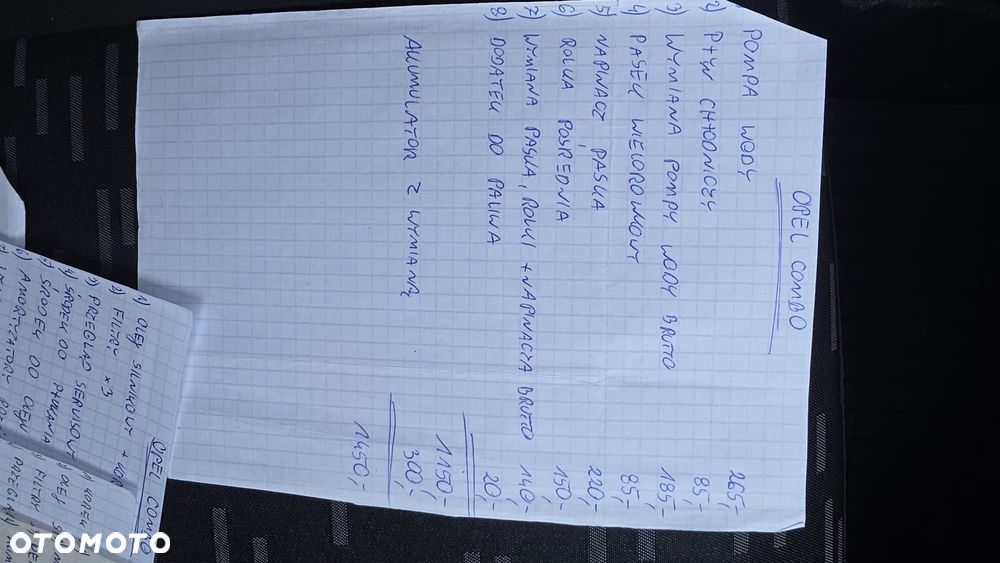 OPEL COMBO
POMPA WODY 265,-
2) PŁYN CHŁODNICZY 85,-
3) WYMIANA POMPY WODY BRUTTO 185,-
4) PASEK WIELOROWKOWY 85,-
5) NAPINACZ PASKA 220,-
6) ROLKA POŚREDNIA 150,-
7) WYMIANA PASKA, ROLKI + NAPINACZA BRUTTO 140,-
8) DODATEK DO PALIWA 20,-
1150,-
AKUMULATOR Z WYMIANĄ 300,-
1450,-
OPEL COMBO
1) OLEJ SILNIKOWY +
2) FILTRY x3
3) PRZEGLĄD SERWISOWY
4) ŚRODEK DO PŁUKANIA
5) ŚRODEK DO OLEJU
6) AMORTYZATORY
OTOMOTO